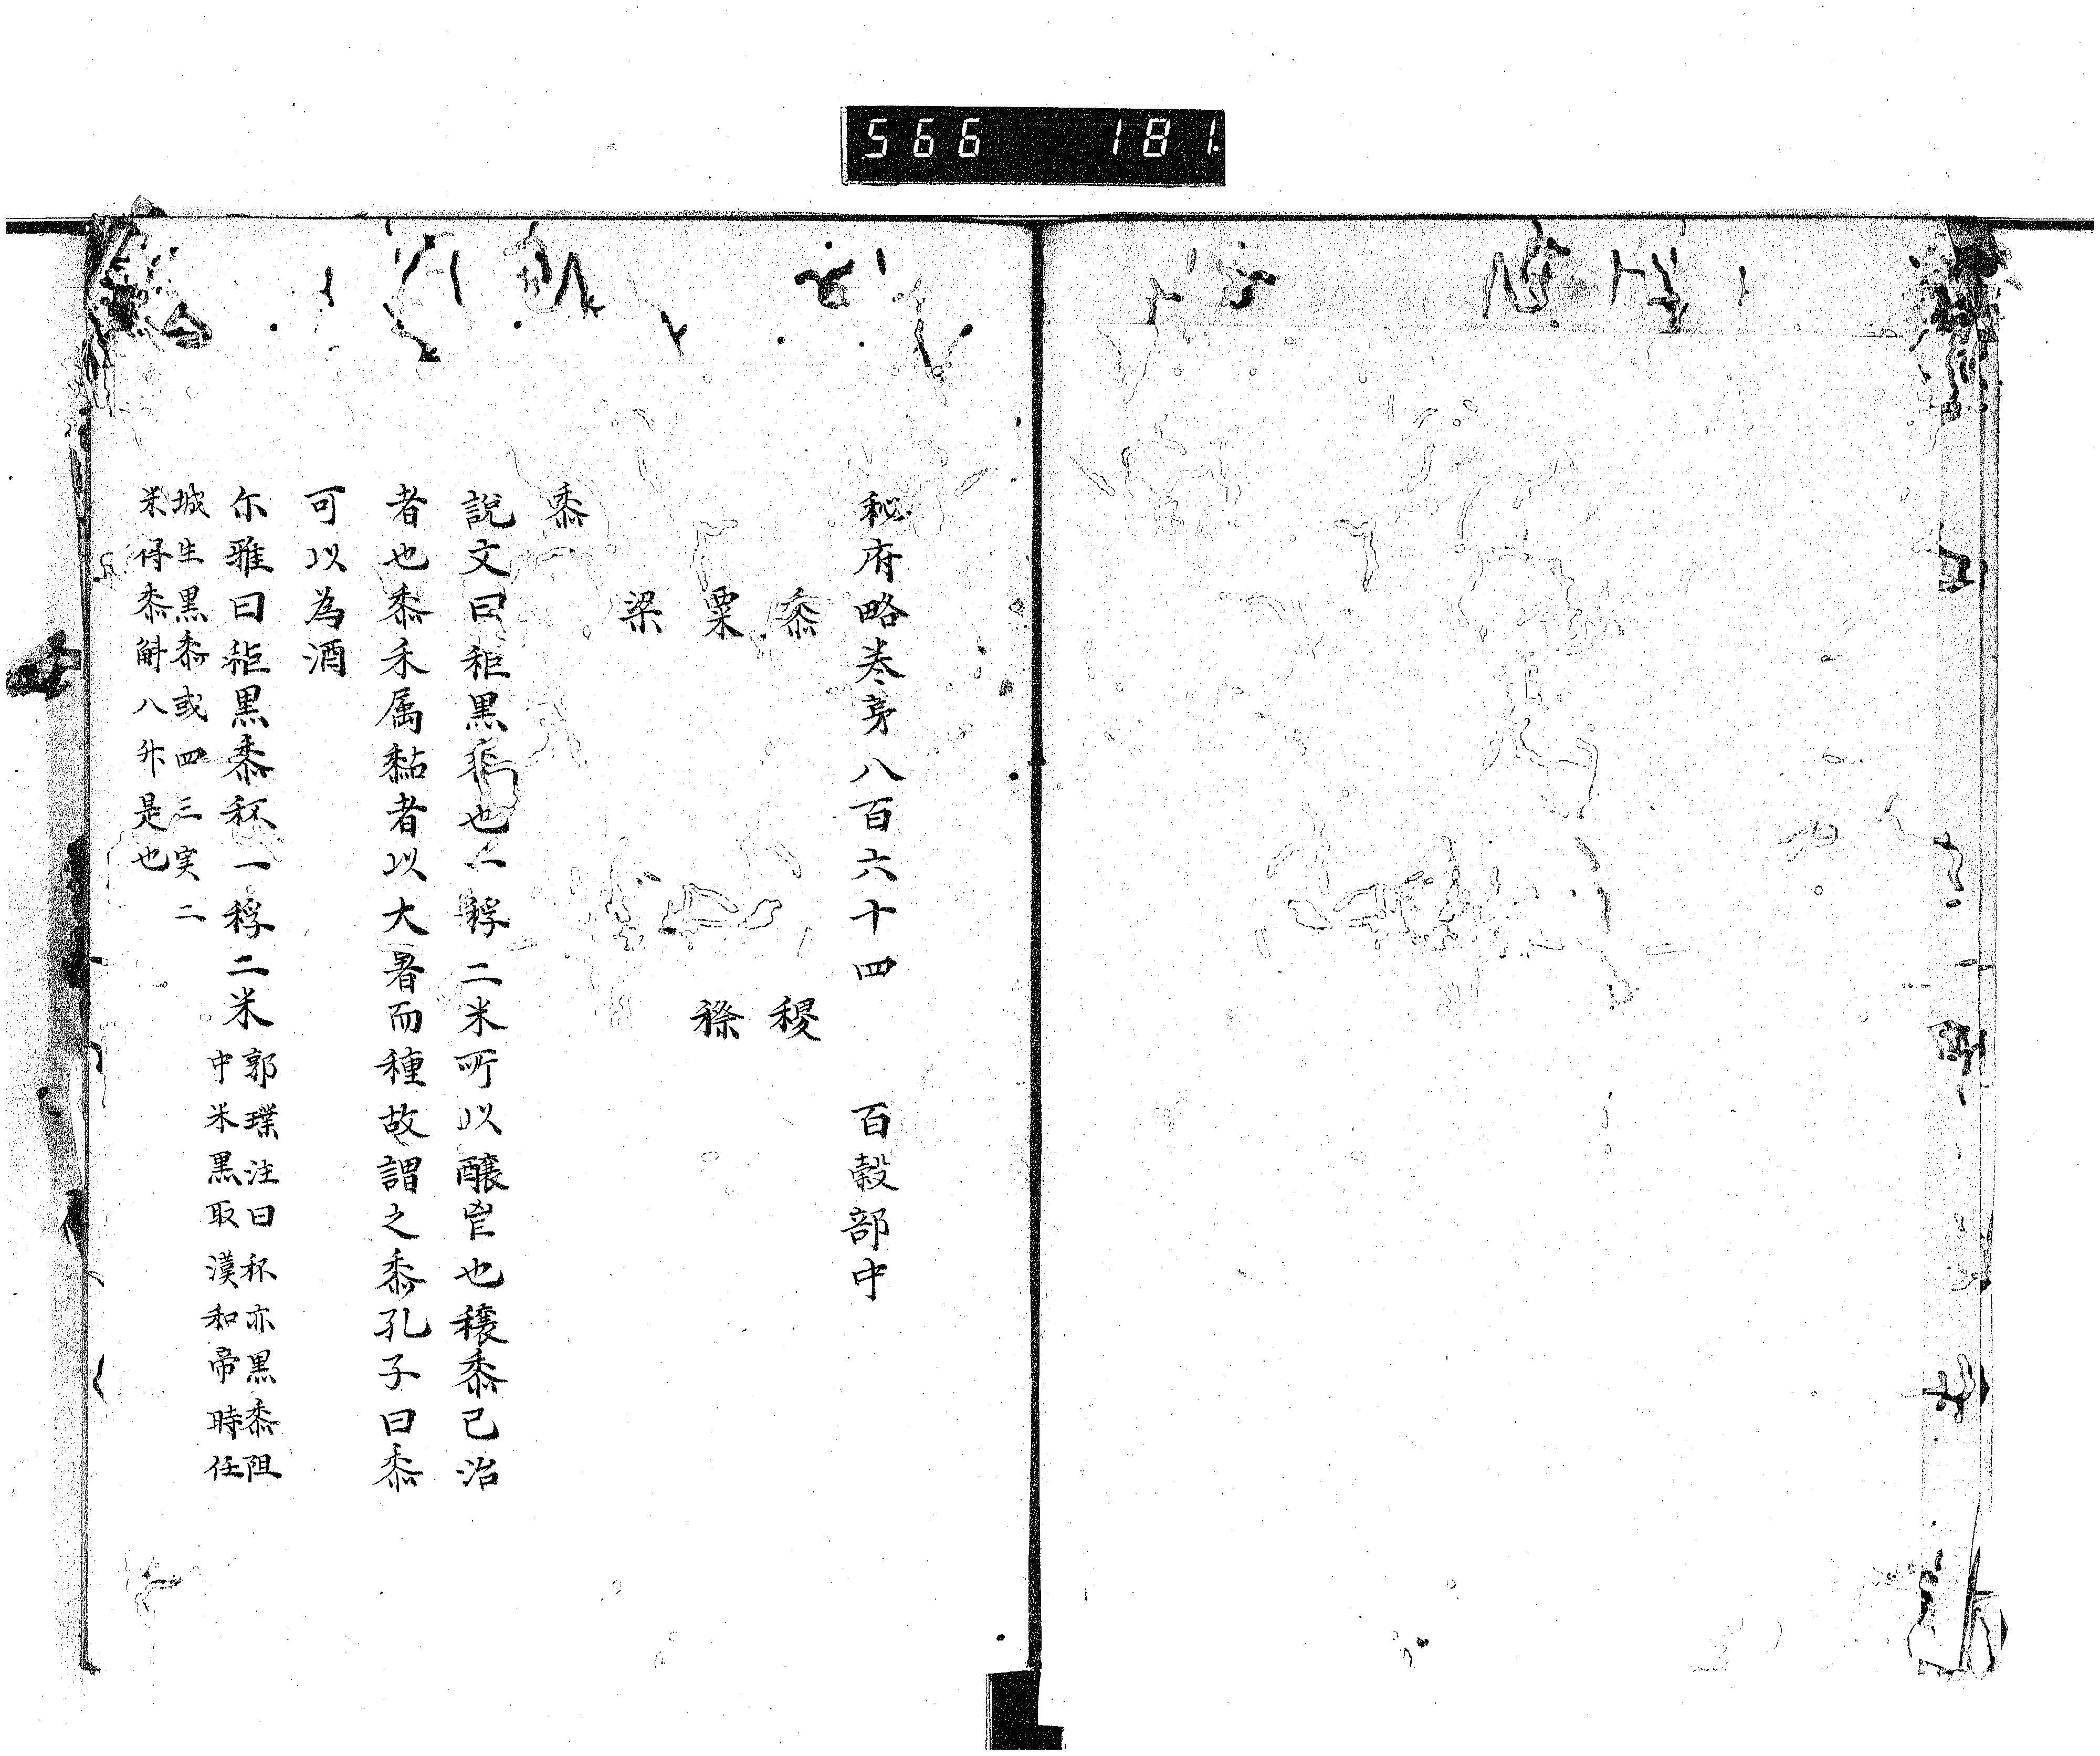 566 181
秘府略巻苐八百六十四 百穀部中
黍 稷
粟 穄
梁
黍
説文曰秬黒黍也一稃二米所以釀鬯也穣黍已治
者也黍禾属黏者以大暑而種故謂之黍孔子曰黍
可以為酒
尓雅曰秬黒黍秠一稃二米郭璞注曰秠亦黒黍阻
中米黒取漢和帝時任
城生黒黍或四三実二
米得黍斛八升是也